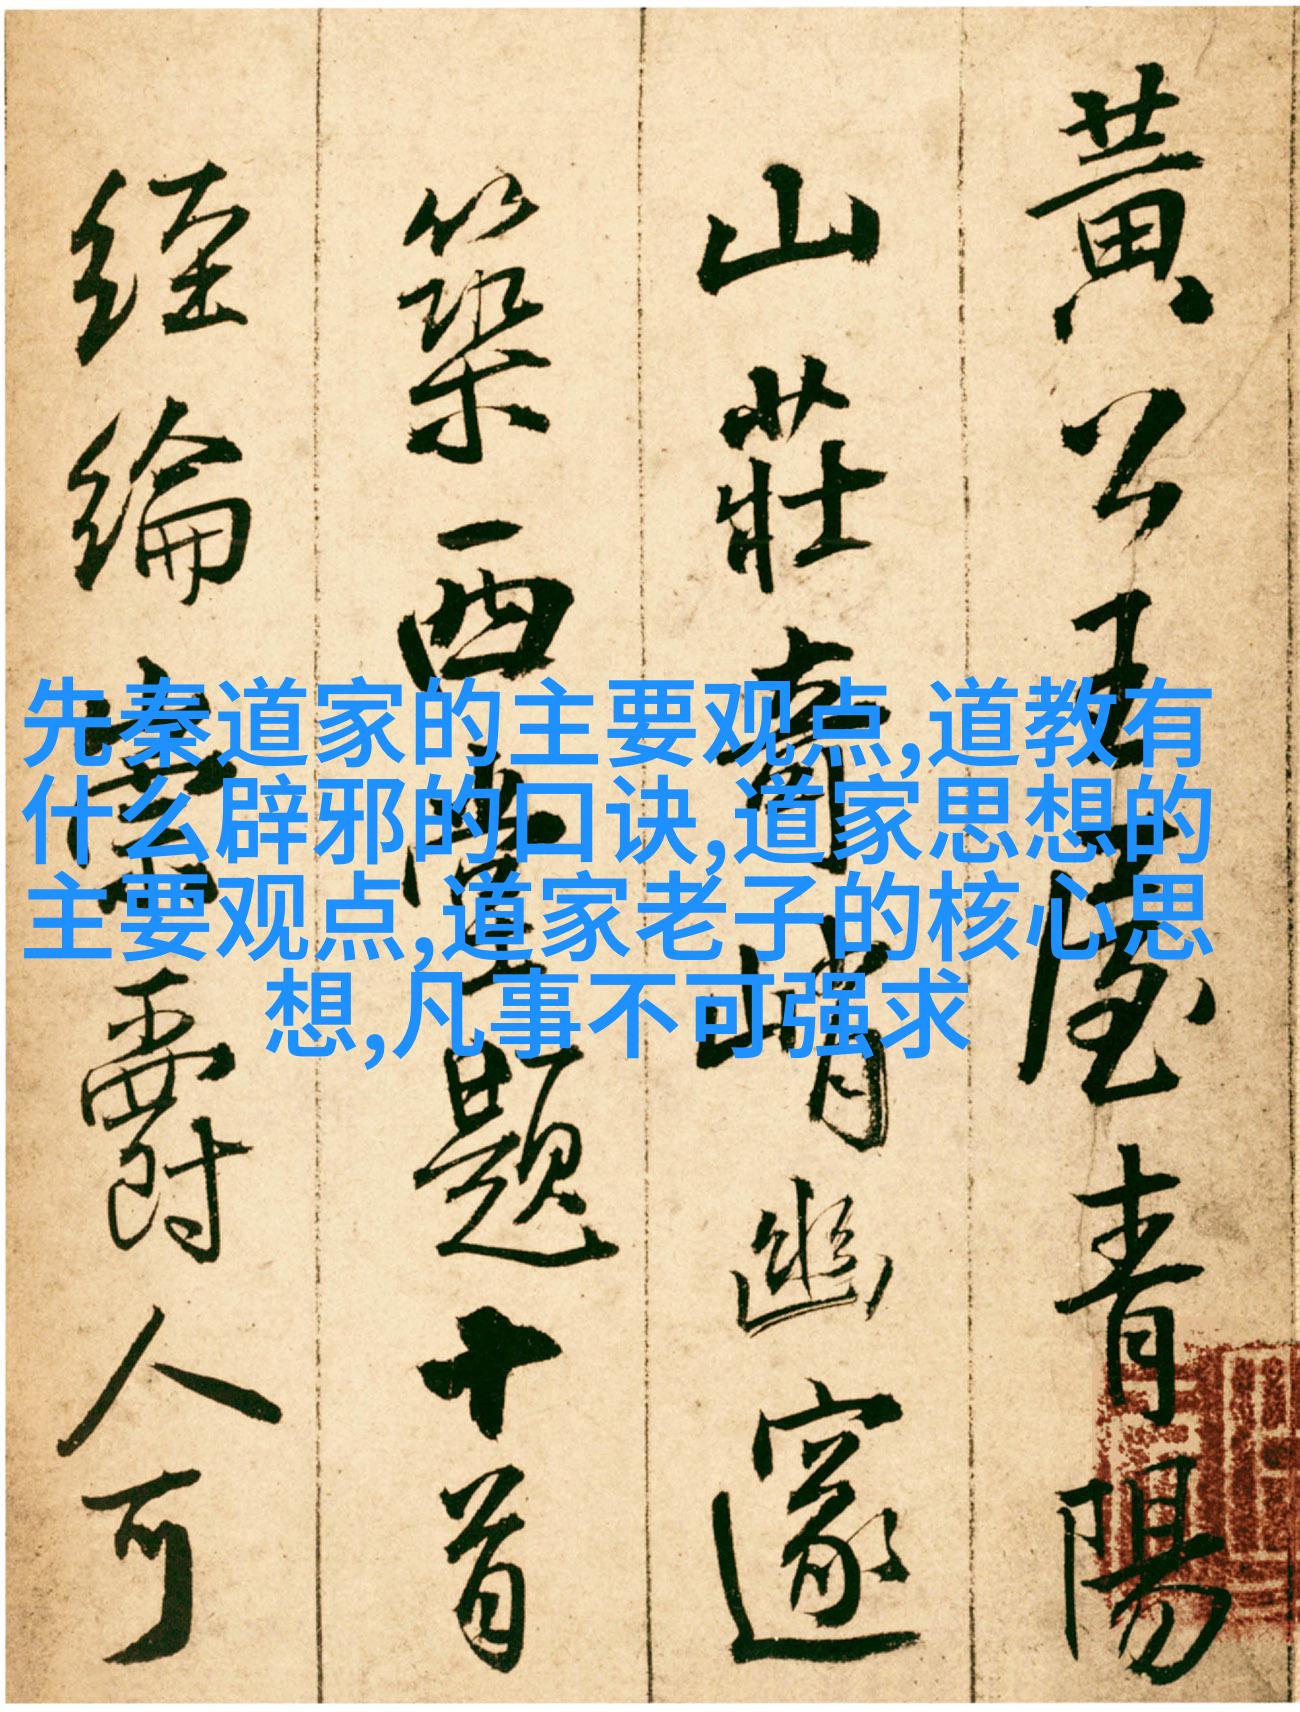 黃公王屋青陽
山莊奇峭幽邃
築西塘十題十首
經綸字爵人可
先秦道家的主要观点,道教有
什么辟邪的口诀,道家思想的
主要观点,道家老子的核心思
想,凡事不可强求